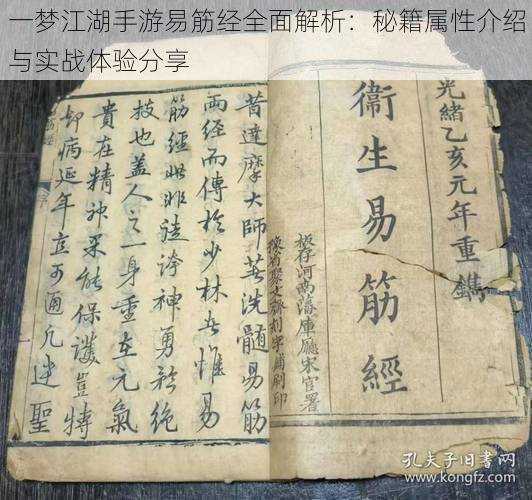 一梦江湖手游易筋经全面解析：秘籍属性介绍
与实战体验分享
光緒乙亥元年重鐫
衞生易筋經
板存河南藩庫廳宋官署
昔達摩大師著洗髓易筋
兩經而傳於少林吾惟易
筋經此非徒誇神勇於絶
技也蓋人之一身重在元氣
貴在精神采能保護豈特
却病延年立可通凡達聖
孔夫子旧书网
www.kongfz.com